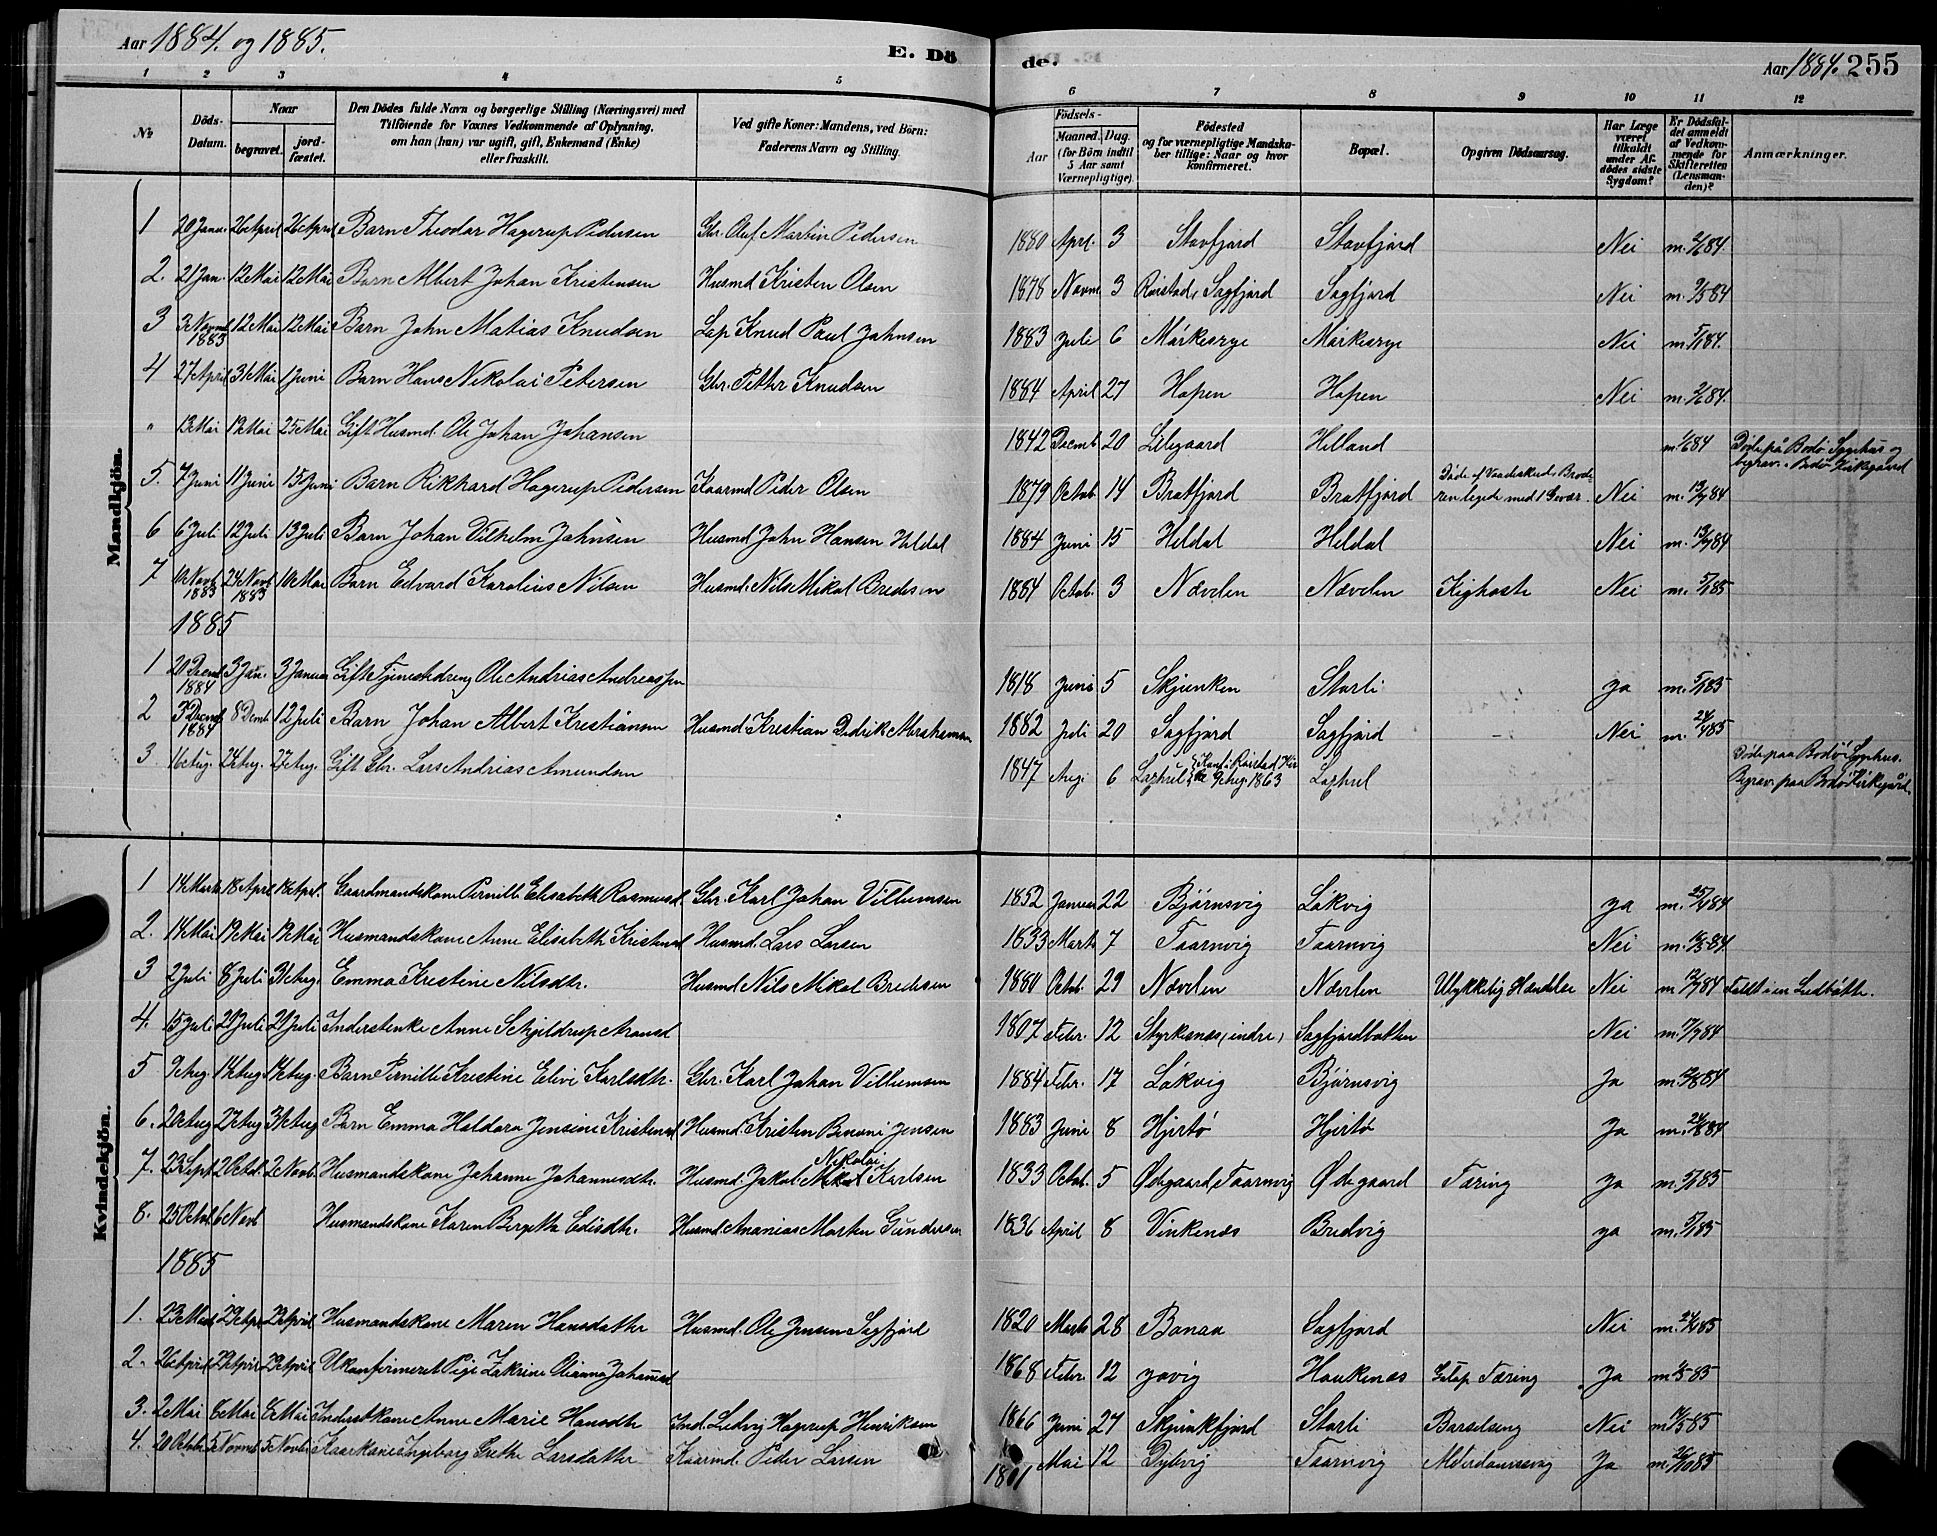 Aar 1884. og 1885.
E. Dö
de.
Aar 1884. 255
1 2 3 4 5 6 7 8 9 10 11 12
No
Döds-Datum.
Naar
begravet.
jord-fæstet.
Den Dödes fulde Navn og borgerlige Stilling (Næringsvei) med
Tilföiende for Voxnes Vedkommende af Oplysning,
om han (hun) var ugift, gift, Enkemand (Enke)
eller fraskilt.
Ved gifte Koner: Mandens, ved Börn:
Faderens Navn og Stilling.
Födsels-
Aar
Maaned. Dag.
(for Börn indtil
5 Aar samt
Værnepligtige).
Födested
og for værnepligtige Mandska-
ber tillige: Naar og hvor
konfirmeret.
Bopæl.
Opgiven Dödsaarsag.
Har Læge
været
tilkaldt
under Af-
dödes sidste
Sygdom?
Er Dödsfal-
det anmeldt
af Vedkom-
mende for
Skifteretten
(Lensman-
den)?
Anmærkninger.
Mandkjön.
1 20 Janu. 26 April 26 April Barn Theodor Hagerup Pedersen Gbr. Oluf Martin Pedersen 1880 Aprl. 3 Stavfjord Stavfjord Nei m. 2/6 84.
2. 21 Jan. 12 Mai 12 Mai Barn Albert Johan Kristensen Husmd Kristen Olsen 1878 Novm 3 Røistad, Sagfjord Sagfjord Nei m. 2/5 84
3 3 Novmb 1883 12 Mai 12 Mai Barn John Matias Knudsen Lap Knud Paul Johnsen 1883 Juli 6 Mørkesvye Mørkesvye Nei m. 5/1 84.
4 27 April 31 Mai 1 Juni Barn Hans Nikolai Petersen Gbr. Petter Knudsen 1884 April 27 Hopen Hopen Nei m. 2/6 84.
" 13 Mai 19 Mai 25 Mai Gift Husmd. Ole Johan Johansen 1842 Decmb 20 Lilegaard Helland m. 1/6 84 Døde på Bodø Sygehus og
begrav. Bodø Kirkegaard
5. 7 Juni 11 Juni 15 Juni Barn Rikhard Hagerup Pedersen Kaarmd Peder Olsen 1879 Octob. 14 Bratfjord Bratfjord Døde af Vaadeskud. Brode-
ren legede med 1 Gevær. Nei m. 13/7 84
6 6 Juli 12 Juli 13 Juli Barn Johan Vilhelm Johnsen Husmd John Hansen Heldal 1884 Juni 15 Heldal Heldal Nei m. 13/7 84
7 10 Novb 1883 24 Novb 1883 18 Mai Barn Edvard Karolius Nilsen Husmd. Nils Mikal Bredesen 1884 Octob. 3 Nævelen Nævelen Kighoste Nei m. 5/1 85
1885
1 20 Decmb 1884 3 Jan. 3 Januar Gift Tjenestedreng Ole Andrias Andreassen 1818 Juni 5 Skjunken Storli ja m. 5/1 85
2 3 Decmb 1884 8 Decmb 12 Juli Barn Johan Albert Kristiansen Husmd. Kristian Didrik Abrahamsen 1882 Juli 20 Sagfjord Sagfjord Nei m. 24/4 85
3 16 Aug. 24 Aug. 27 Aug. Gift Gbr. Lars Andrias Amundsen 1847 Aug. 6 Laxhul. Konf. i Røistad Kir
ke 9 Aug. 1863 Laxhul Døde paa Bodø Sygehus.
Begrav. paa Bodø Kirkegård.
Kvindekjön.
1 14 Marts 18 Aprl 18 Aprl. Gaardmandskone Pernille Elisabeth Rasmusd. Gbr. Karl Johan Villumsen 1852 Januar 22 Bjørnsvig Løkvig ja m. 25/4 84
2. 14 Mai 19 Mai 19 Mai Husmandskone Anne Elisabeth Kristensd Husmd. Lars Larsen 1833 Marts 7 Taarnvig Taarnvig Nei m. 18/5 84
3 2 Juli 8 Juli 31 Aug. Emma Kristine Nilsdtr. Husmd Nils Mikal Bredesen 1880 Octob. 29 Nævelen Nævelen Ulykkelig Hændelse Nei m. 12/7 84 Faldt i en Ludbøtte.
4. 15 Juli 20 Juli 20 Juli Inderstenke Anne Schjeldrup Aronsd 1807 Febr. 12 Styrkesnes, indre, Sagfjordbotten Nei m. 17/7 84
5 9 Aug. 14 Aug. 14 Aug. Barn Pernille Kristine Elivi Karlsdtr. Gbr. Karl Johan Villumsen 1884 Febr. 17 Løkvig Bjørnsvig Ja m. 12/8 84
6. 20 Aug 27 Aug 31 Aug Barn Emma Haldora Jensine Kristensd Husmd. Kristen Benoni Jensen 1883 Juni 8 Hjertø Hjertø Ja m. 24/8 84
7. 23 Sept 2 Octob. 2 Novb. Husmandskone Johanne Johannesdtr. Husmd. Jakob Nikolai Karlsen 1833 Octob. 5 Ødegaard, Taarnvig Ødegaard Tæring ja m. 5/1 85
8. 25 Octob 6 Novb Husmandskone Karen Bergitta Edisdtr. Husmd. Ananias Morten Gundersen 1836 April 8 Vinkenes Bredvig ja m. 5/1 85
1885
1. 23 Mars 29 Apr 29 April Husmandskone Maren Hansdatter Husmd. Ole Jensen Sagfjord 1820 Marts 28 Bonaa Sagfjord Nei m. 24/4 85
2. 26 April 29 April 29 April Ukonfirmeret Pige Zakrine Olianna Johansd 1868 Febr. 12 Høukenes Galop Tæring Ja m. 1/5 85
3. 2 Mai 6 Mai 6 Mai Inderstkone Anne Marie Hansdtr Ind. Ludvig Hagerup Henriksen 1866 Juni 27 Skjunkfjord Storli Barselseng Nei m. 17/5 85
4. 20 Octob. 5 Novmb 5 Novbr Kaarkone Ingeborg Grethe Larsdatter Kaarmd. Peder Larsen 1801 Mai 12 Dybvig Taarnvig Alderdomssvag Ja m. 26/10 85